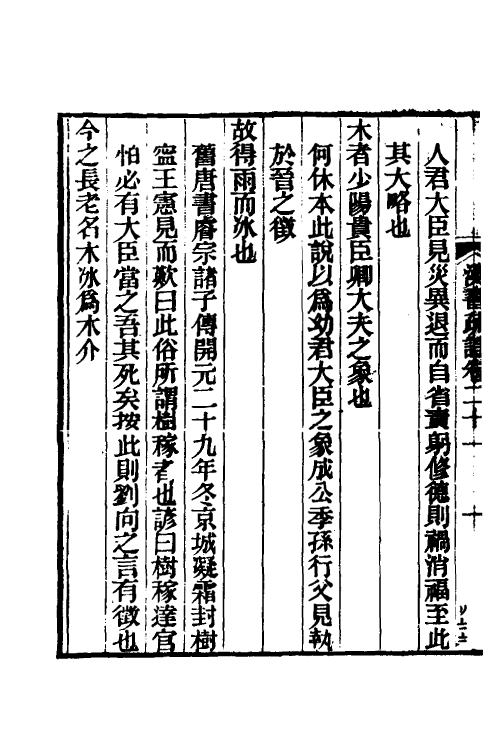 人君大臣見災異退而自省責躬修德則禍消福至此
其大略也
木者少陽貴臣卿大夫之象也
何休本此說以爲幼君大臣之象成公季孫行父見執
於晉之徵
故得雨而冰也
舊唐書睿宗諸子傳開元二十九年冬京城凝霜封樹
寍王憲見而歎曰此俗所謂樹稼者也諺曰樹稼達官
怕必有大臣當之吾其死矣按此則劉向之言有徵也
今之長老名木冰爲木介